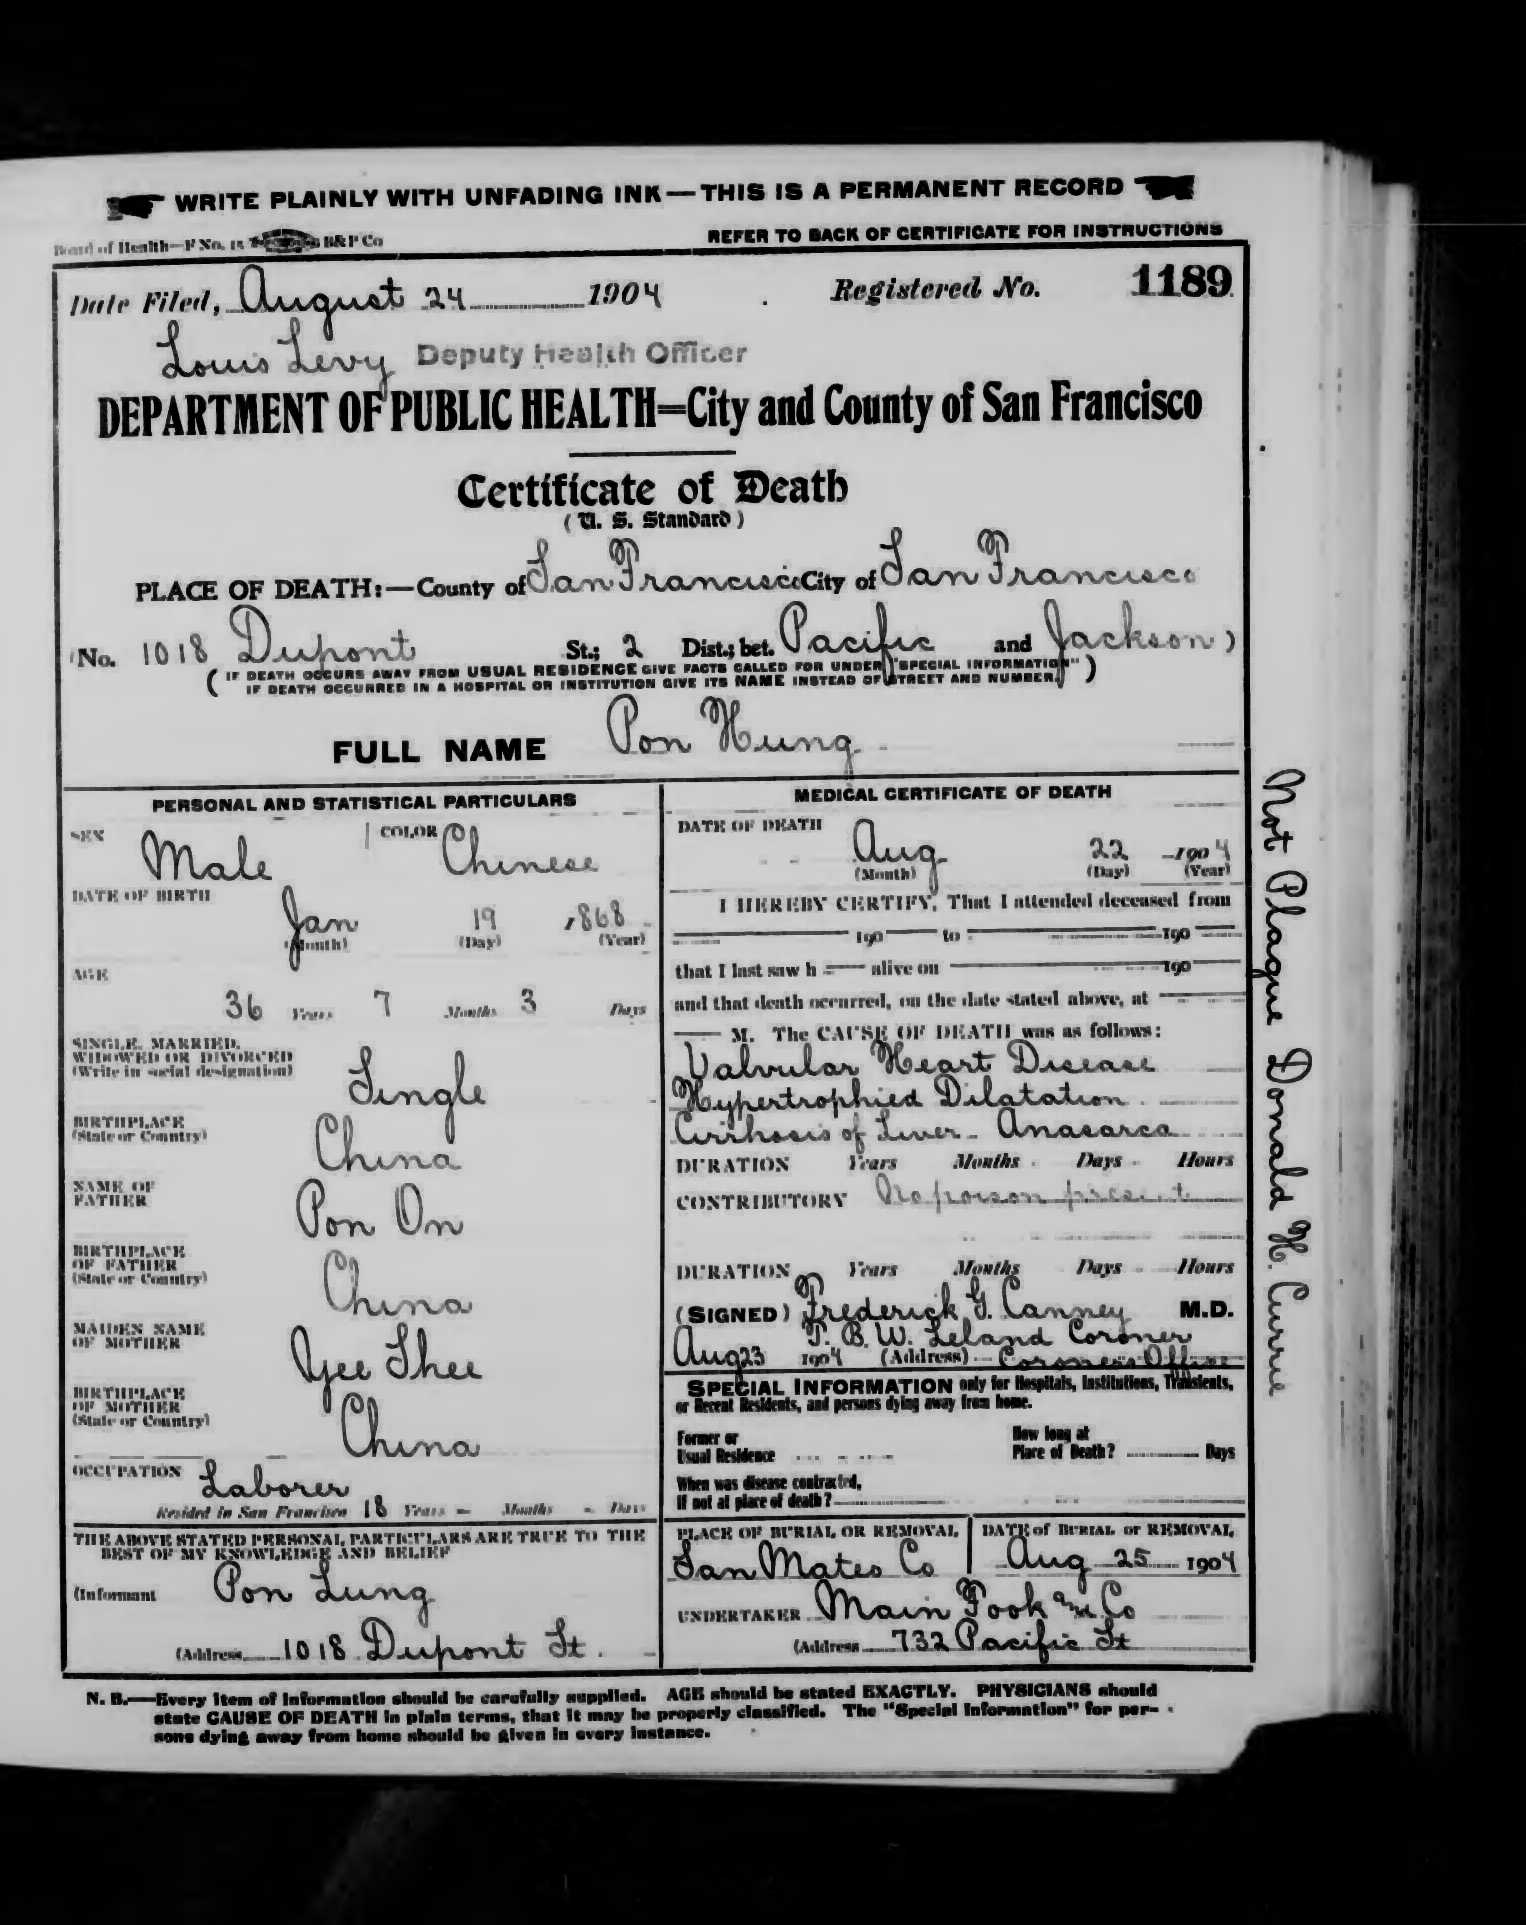 WRITE PLAINLY WITH UNFADING INK—THIS IS A PERMANENT RECORD
Board of Health—F No. 15 B&P Co
REFER TO BACK OF CERTIFICATE FOR INSTRUCTIONS
Date Filed, August 24 1904 Registered No. 1189
Louis Levy Deputy Health Officer
DEPARTMENT OF PUBLIC HEALTH=City and County of San Francisco
Certificate of Death
(U. S. Standard)
PLACE OF DEATH:—County of San Francisco City of San Francisco
(No. 1018 Dupont St.; 2 Dist.; bet. Pacific and Jackson)
(IF DEATH OCCURS AWAY FROM USUAL RESIDENCE GIVE FACTS CALLED FOR UNDER "SPECIAL INFORMATION"
IF DEATH OCCURRED IN A HOSPITAL OR INSTITUTION GIVE ITS NAME INSTEAD OF STREET AND NUMBER.)
FULL NAME Pon Hung
PERSONAL AND STATISTICAL PARTICULARS
SEX Male COLOR Chinese
DATE OF BIRTH
Jan 19 1868
(Month) (Day) (Year)
AGE
36 Years 7 Months 3 Days
SINGLE, MARRIED,
WIDOWED OR DIVORCED
(Write in social designation)
Single
BIRTHPLACE
(State or Country)
China
NAME OF
FATHER
Pon On
BIRTHPLACE
OF FATHER
(State or Country)
China
MAIDEN NAME
OF MOTHER
Yee Shee
BIRTHPLACE
OF MOTHER
(State or Country)
China
OCCUPATION Laborer
Resided in San Francisco 18 Years - Months - Days
THE ABOVE STATED PERSONAL PARTICULARS ARE TRUE TO THE
BEST OF MY KNOWLEDGE AND BELIEF
(Informant Pon Lung
(Address 1018 Dupont St.
MEDICAL CERTIFICATE OF DEATH
DATE OF DEATH
Aug 22 1904
(Month) (Day) (Year)
I HEREBY CERTIFY, That I attended deceased from
190 to 190
that I last saw h alive on 190
and that death occurred, on the date stated above, at
M. The CAUSE OF DEATH was as follows:
Valvular Heart Disease
Hypertrophied Dilatation
Cirrhosis of Liver - Anasarca
DURATION Years Months Days Hours
CONTRIBUTORY No poison present
DURATION Years Months Days Hours
(SIGNED) Frederick G. Canney M.D.
T. B. W. Leland Coroner
Aug 23 1904 (Address) Coroner's Office
SPECIAL INFORMATION only for Hospitals, Institutions, Transients,
or Recent Residents, and persons dying away from home.
Former or
Usual Residence
How long at
Place of Death? Days
When was disease contracted,
If not at place of death?
PLACE OF BURIAL OR REMOVAL
San Mateo Co
DATE of BURIAL or REMOVAL
Aug 25 1904
UNDERTAKER Main Fook and Co
(Address 732 Pacific St
N. B.—Every item of information should be carefully supplied. AGE should be stated EXACTLY. PHYSICIANS should
state CAUSE OF DEATH in plain terms, that it may be properly classified. The "Special Information" for per-
sons dying away from home should be given in every instance.
Not Plague Donald H. Currie